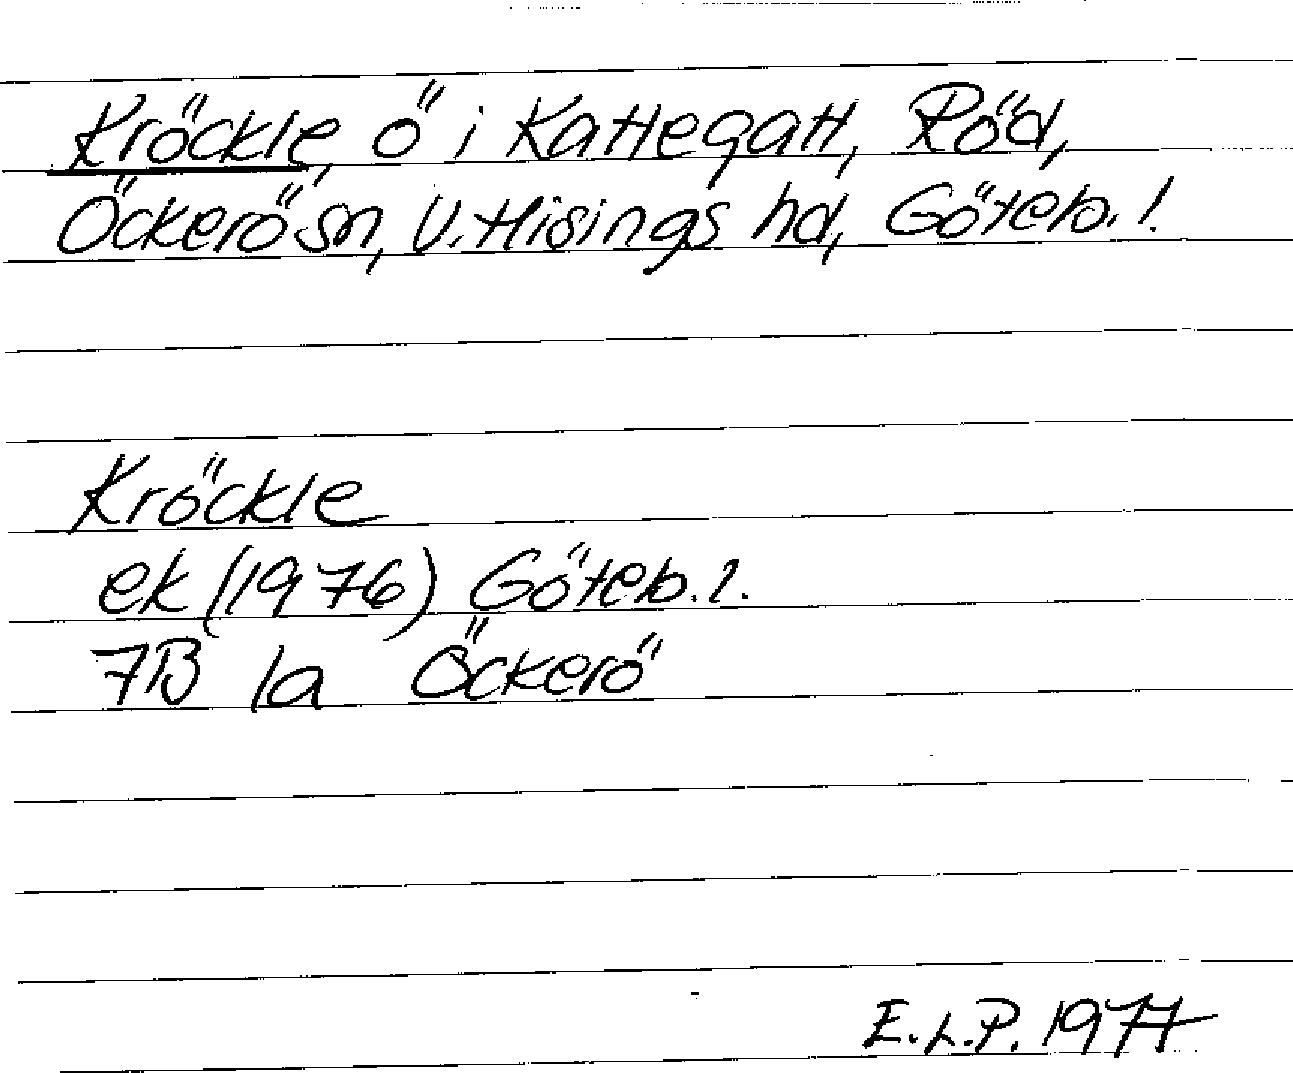 Kröckle, ö i Kattegatt, Röd,
Öckerö sn, V. Hisings hd, Göteb. l.
Kröckle
ek (1976) Göteb. l.
7B 1a Öckerö
E.L.P. 1977